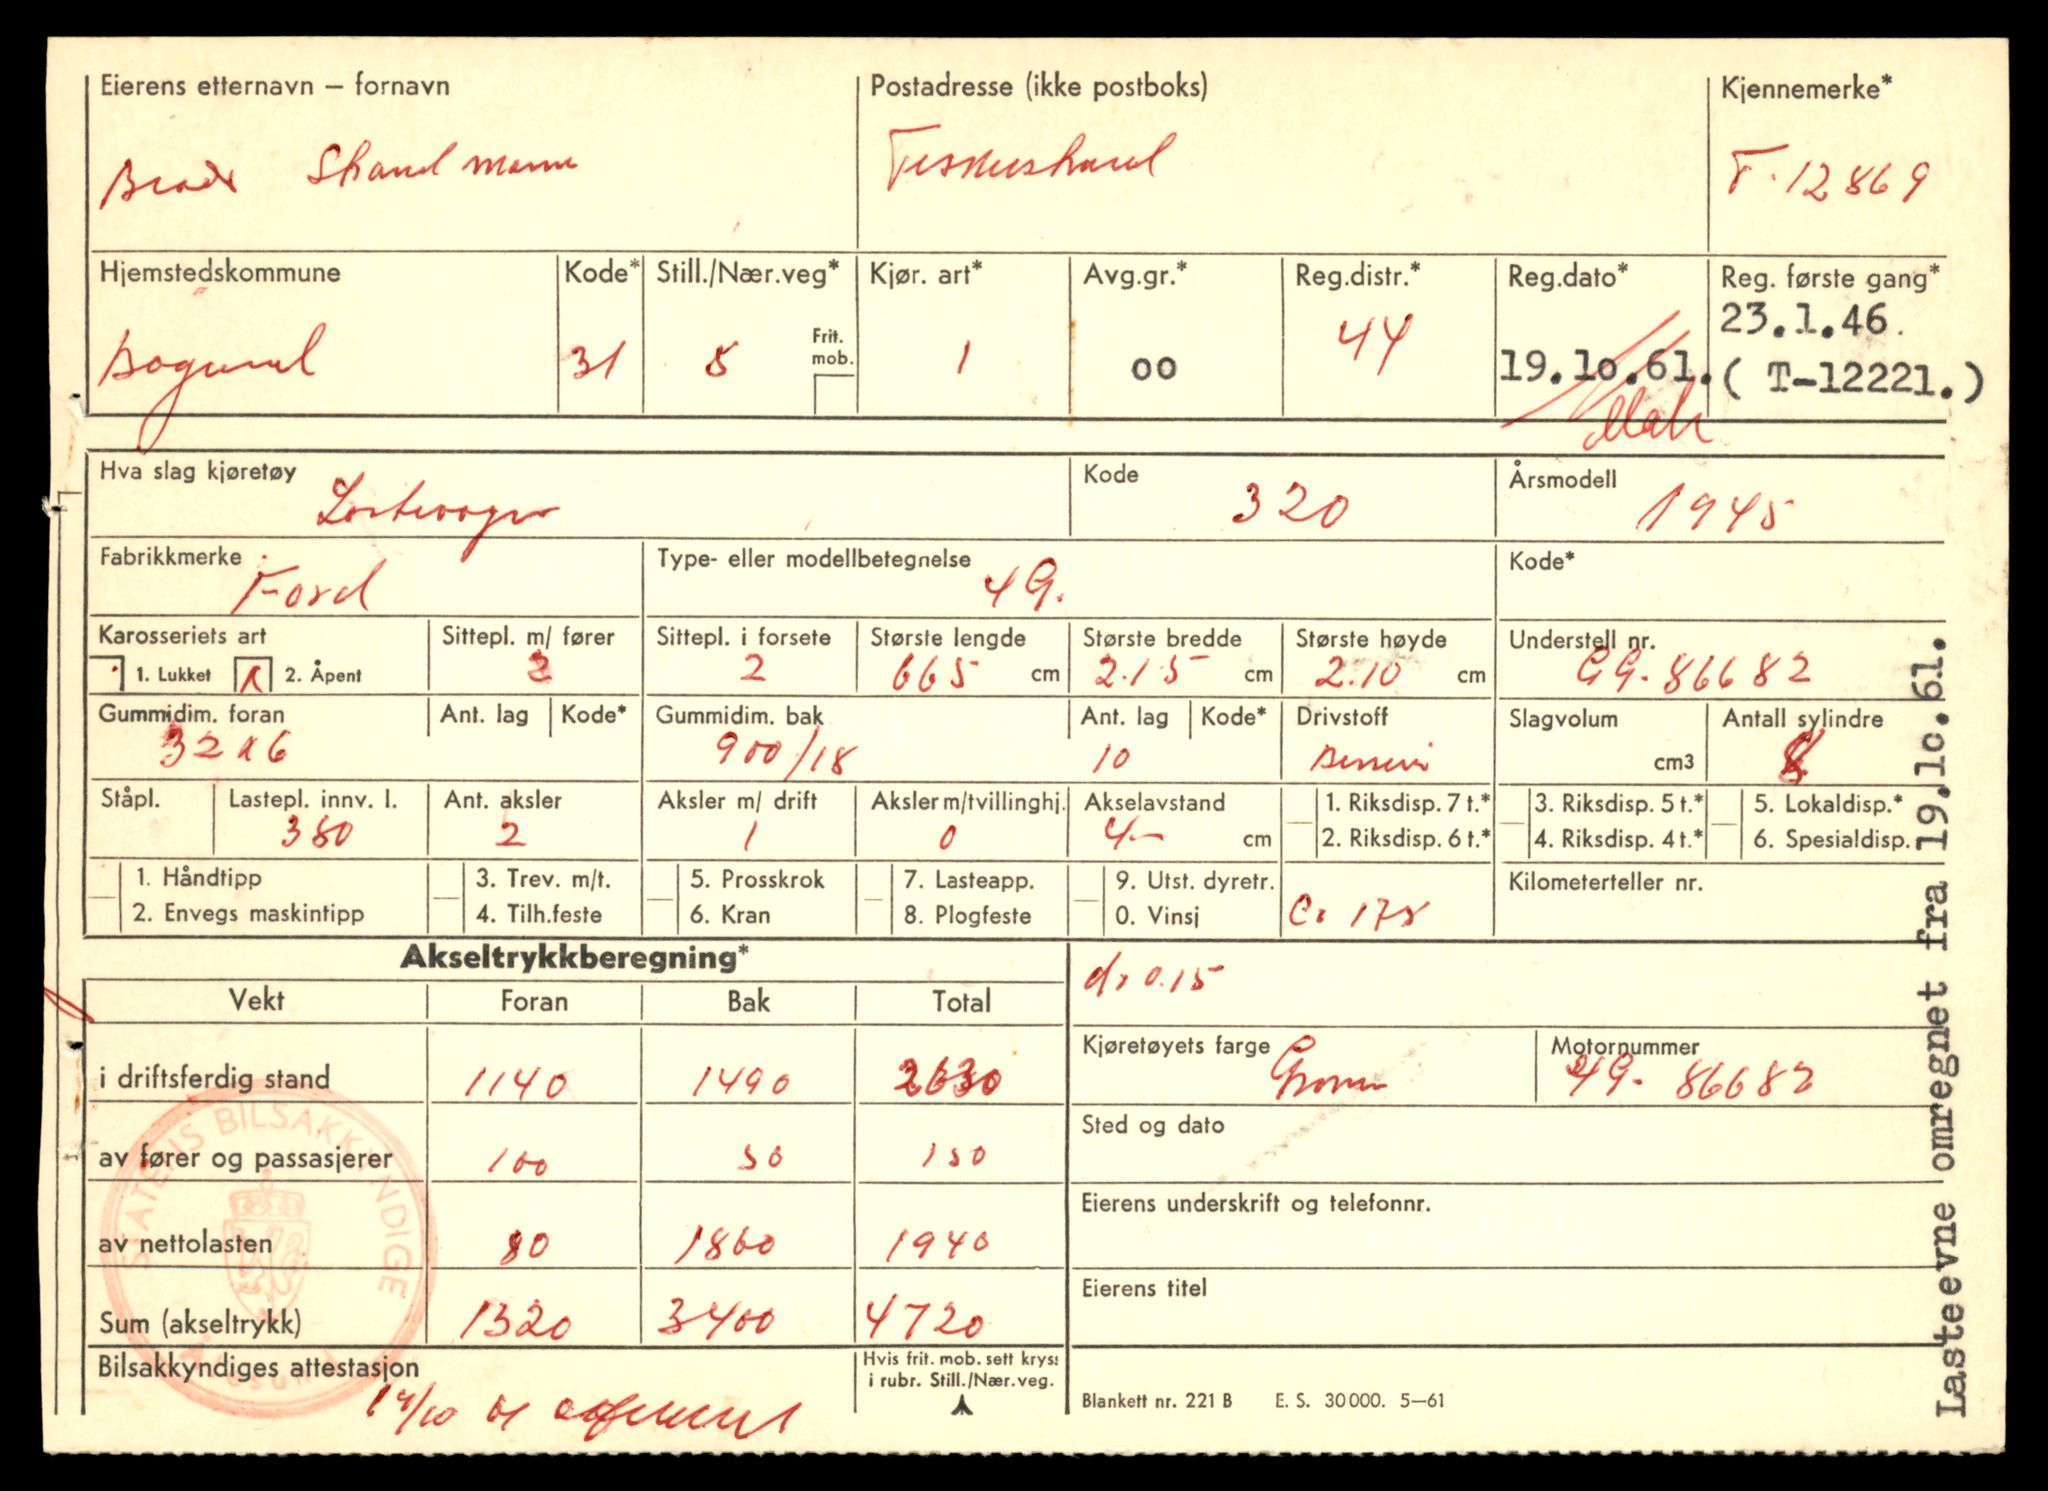 Eierens etternavn – fornavn Postadresse (ikke postboks) Kjennemerke*
Brødr Strandmann Fiskerstrand T-12869
Hjemstedskommune Kode* Still./Nær.veg* Kjør. art* Avg.gr.* Reg.distr.* Reg.dato* Reg. første gang*
Borgund 31 5 Frit. mob. 1 oo 44 19.1o.61. 23.1.46.
( T-12221.)
Hva slag kjøretøy Kode Årsmodell
Lastevogn 320 1945
Fabrikkmerke Type- eller modellbetegnelse Kode*
Ford 4G.
Karosseriets art Sittepl. m/ fører Sittepl. i forsete Største lengde Største bredde Største høyde Understell nr.
1. Lukket x 2. Åpent 2 2 665 cm 2.15 cm 2.10 cm GG-86682
Gummidim. foran Ant. lag Kode* Gummidim. bak Ant. lag Kode* Drivstoff Slagvolum Antall sylindre
32x6 900/18 10 Bensin cm3 8
Ståpl. Lastepl. innv. l. Ant. aksler Aksler m/ drift Aksler m/tvillinghj. Akselavstand 1. Riksdisp. 7 t.* 3. Riksdisp. 5 t.* 5. Lokaldisp.*
380 2 1 0 4- cm 2. Riksdisp. 6 t.* 4. Riksdisp. 4 t.* 6. Spesialdisp.
1. Håndtipp 3. Trev. m/t. 5. Prosskrok 7. Lasteapp. 9. Utst. dyretr. Kilometerteller nr.
2. Envegs maskintipp 4. Tilh.feste 6. Kran 8. Plogfeste 0. Vinsj C. 178
Akseltrykkberegning*
d. 0.15
Vekt Foran Bak Total
Kjøretøyets farge Motornummer
i driftsferdig stand 1140 1490 2630 Grønn 4G- 86682
Sted og dato
av fører og passasjerer 100 50 150
Eierens underskrift og telefonnr.
av nettolasten 80 1860 1940
Eierens titel
Sum (akseltrykk) 1320 3400 4720
Bilsakkyndiges attestasjon Hvis frit. mob. sett kryss
i rubr. Still./Nær.veg.
Blankett nr. 221 B E. S. 30 000. 5–61
STATENS BILSAKKYNDIGE
Lasteevne omregnet fra 19.1o.61.